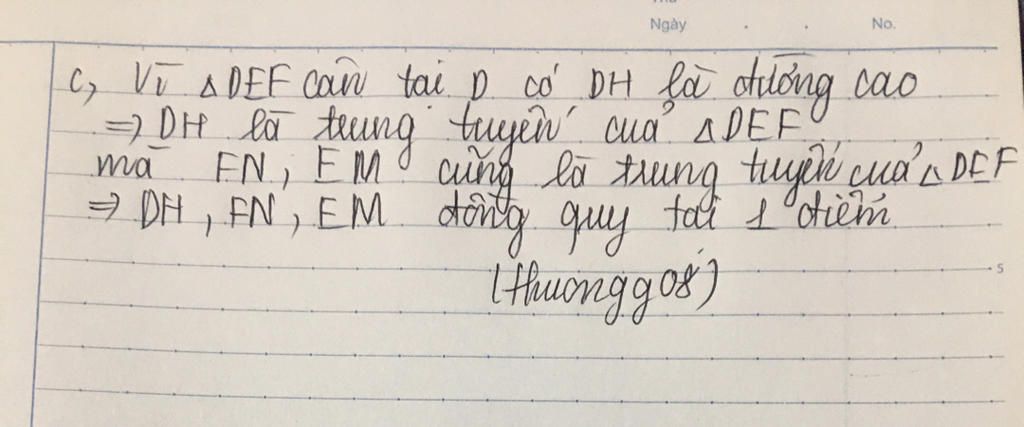 Thứ
Ngày . . No.
c, Vì △DEF cân tại D có DH là đường cao
=> DH là trung tuyến của △DEF
mà FN, EM cũng là trung tuyến của △DEF
=> DH, FN, EM đồng quy tại 1 điểm
(thuongg08)
5